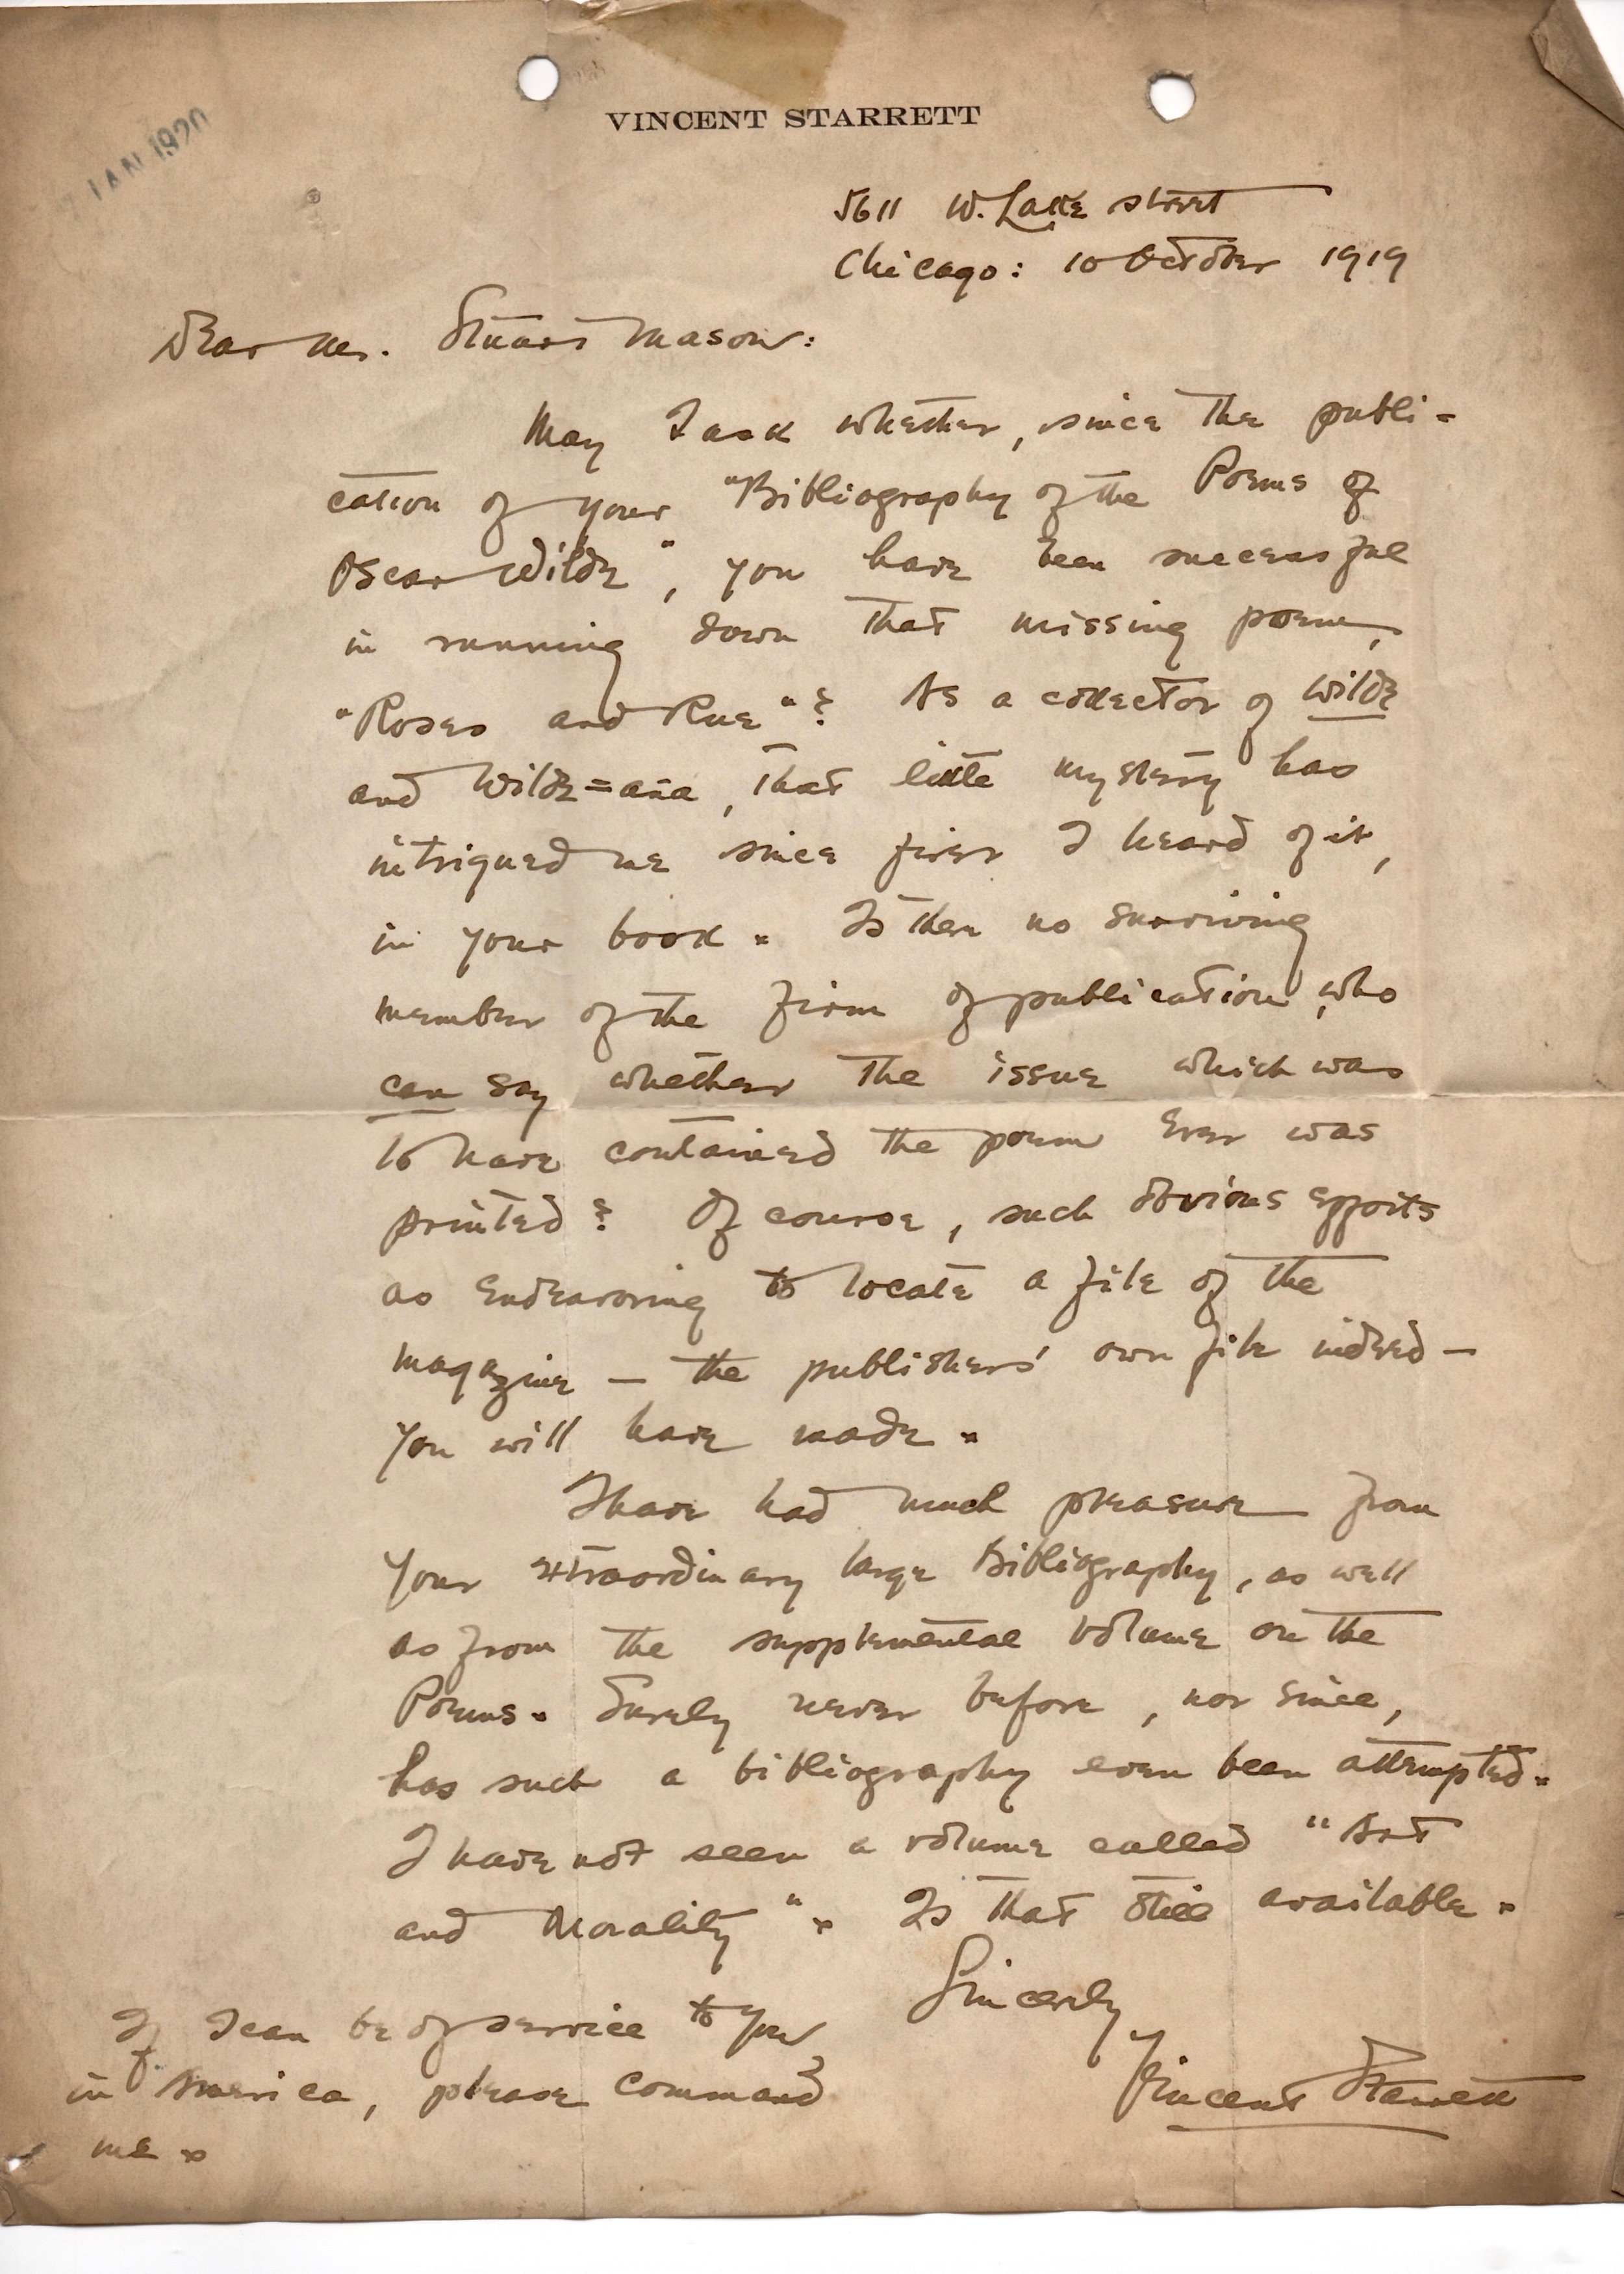 VINCENT STARRETT
JAN 1920
5611 W. Lake street
Chicago: 10 October 1919
Dear Mr. Stuart Mason:
May I ask whether, since the publi=
cation of your "Bibliography of the Poems of
Oscar Wilde", you have been successful
in running down that missing poem,
"Roses and Rue"? As a collector of Wilde
and Wilde=ana, that little mystery has
intrigued me since first I heard of it,
in your book. Is there no surviving
member of the firm of publication, who
can say whether the issue which was
to have contained the poem ever was
printed? Of course, such obvious efforts
as endeavoring to locate a file of the
magazine — the publishers' own file indeed —
you will have made.
I have had much pleasure from
your extraordinary large Bibliography, as well
as from the supplemental volume on the
Poems. Surely never before, nor since,
has such a bibliography even been attempted.
I have not seen a volume called "Art
and Morality". Is that still available.
Sincerely
Vincent Starrett
If I can be of service to you,
in America, please command
me.